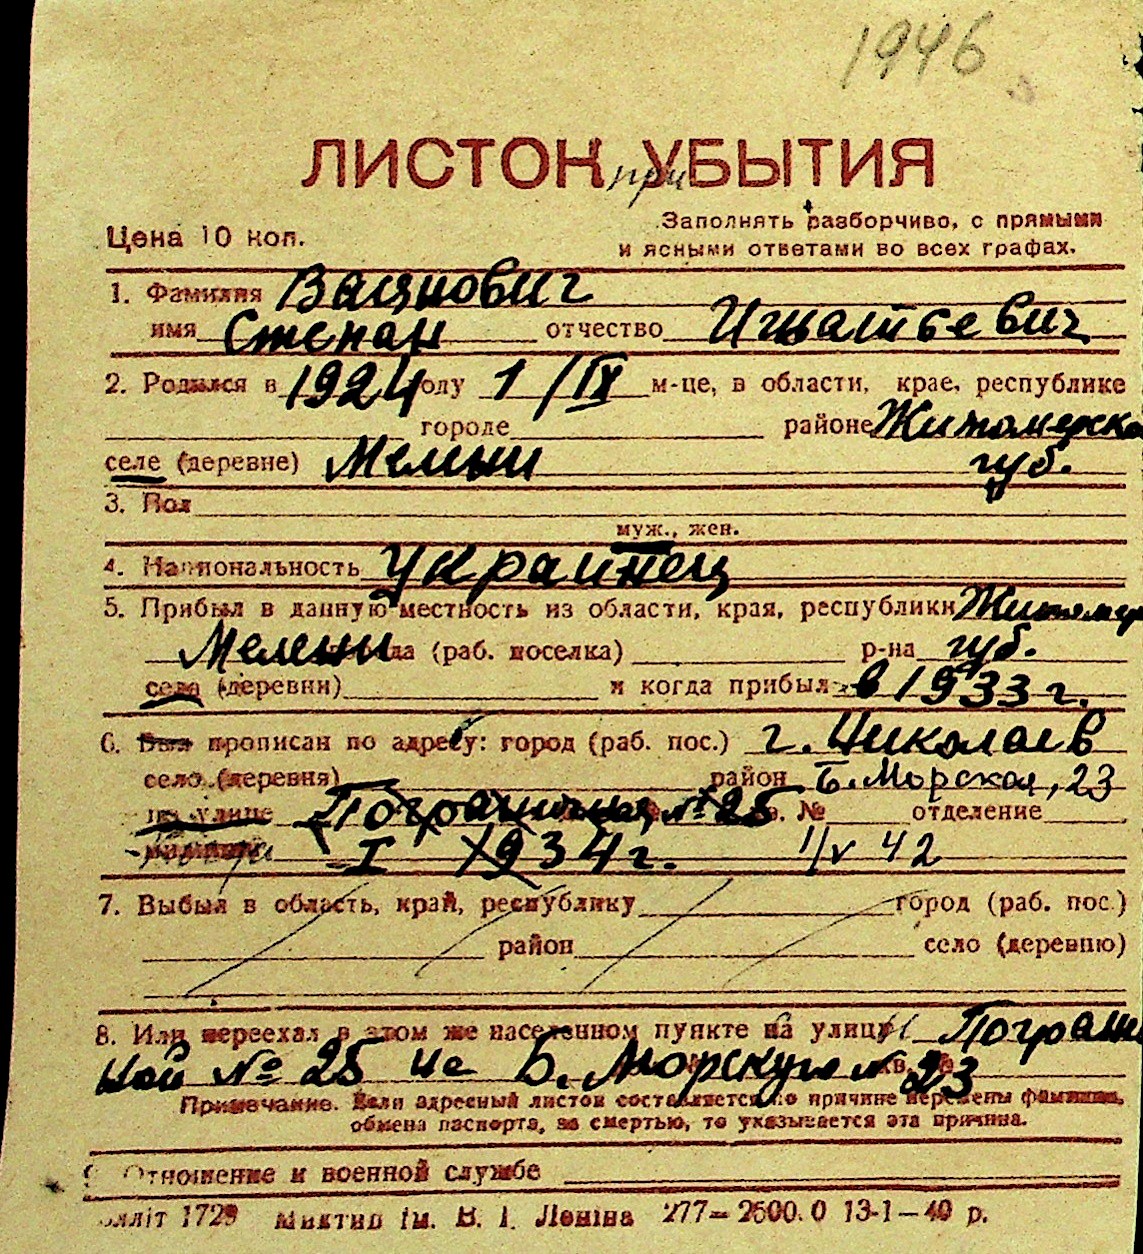 1946
ЛИСТОК при УБЫТИЯ
Цена 10 коп.
Заполнять разборчиво, с прямыми
и ясными ответами во всех графах.
1. Фамилия
имя Степан отчество Игнатьевич
2. Родился в 1924 году 1/IX м-це, в области, крае, республике
городе районе Житомирско
селе (деревне) Мелени губ.
3. Пол
муж., жен.
4. Национальность Украинец
5. Прибыл в данную местность из области, края, республики Житомир
Мелени города (раб. поселка) р-на губ.
села (деревни) и когда прибыл в 1933 г.
6. Был прописан по адресу: город (раб. пос.) г. Николаев
село (деревня) район Б. Морская, 23
по улице Пограничная, № 25 кв. № отделение
милиции I 1934 г. 1/V 42
7. Выбыл в область, край, республику город (раб. пос.)
район село (деревню)
8. Или переехал в этом же населенном пункте на улицу Пограни
ной № 25 на Б. Морскую № 23
Примечание. Если адресный листок составляется по причине перемены фамилии,
обмена паспорта, за смертью, то указывается эта причина.
9. Отношение к военной службе
1729 ім. В. І. Леніна 277—2600.0 13-1—40 р.